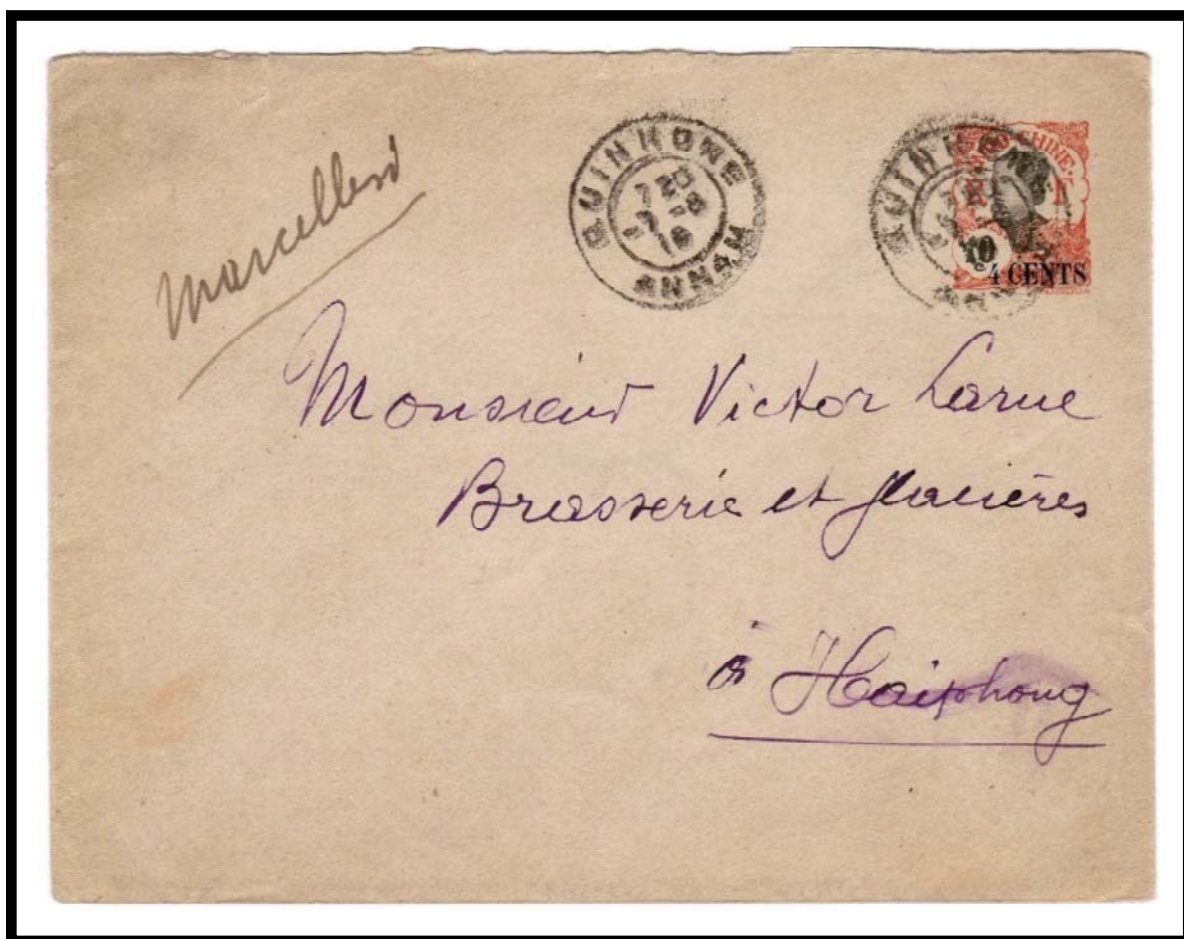 Marcellesi
QUINHONE
ANNAM
QUINH
INDO-CHINE
R F
10
4 CENTS
Monsieur Victor Larue
Brasserie et glacières
à Haiphong